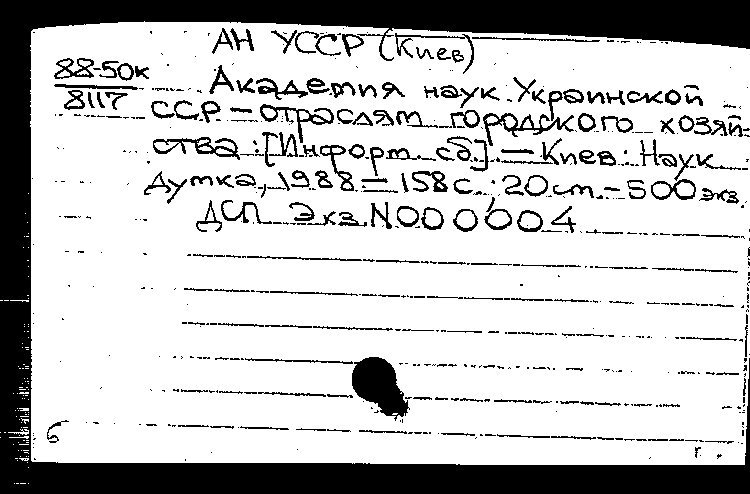 АН УССР (Киев)
88-50к
8117
Академия наук Украинской
ССР – отраслям городского хозяй-
ства : [Информ. сб.]. – Киев : Наук
думка, 1988 – 158 с. ; 20 см. – 500 экз.
ДСП Экз. N 000004
б
г.